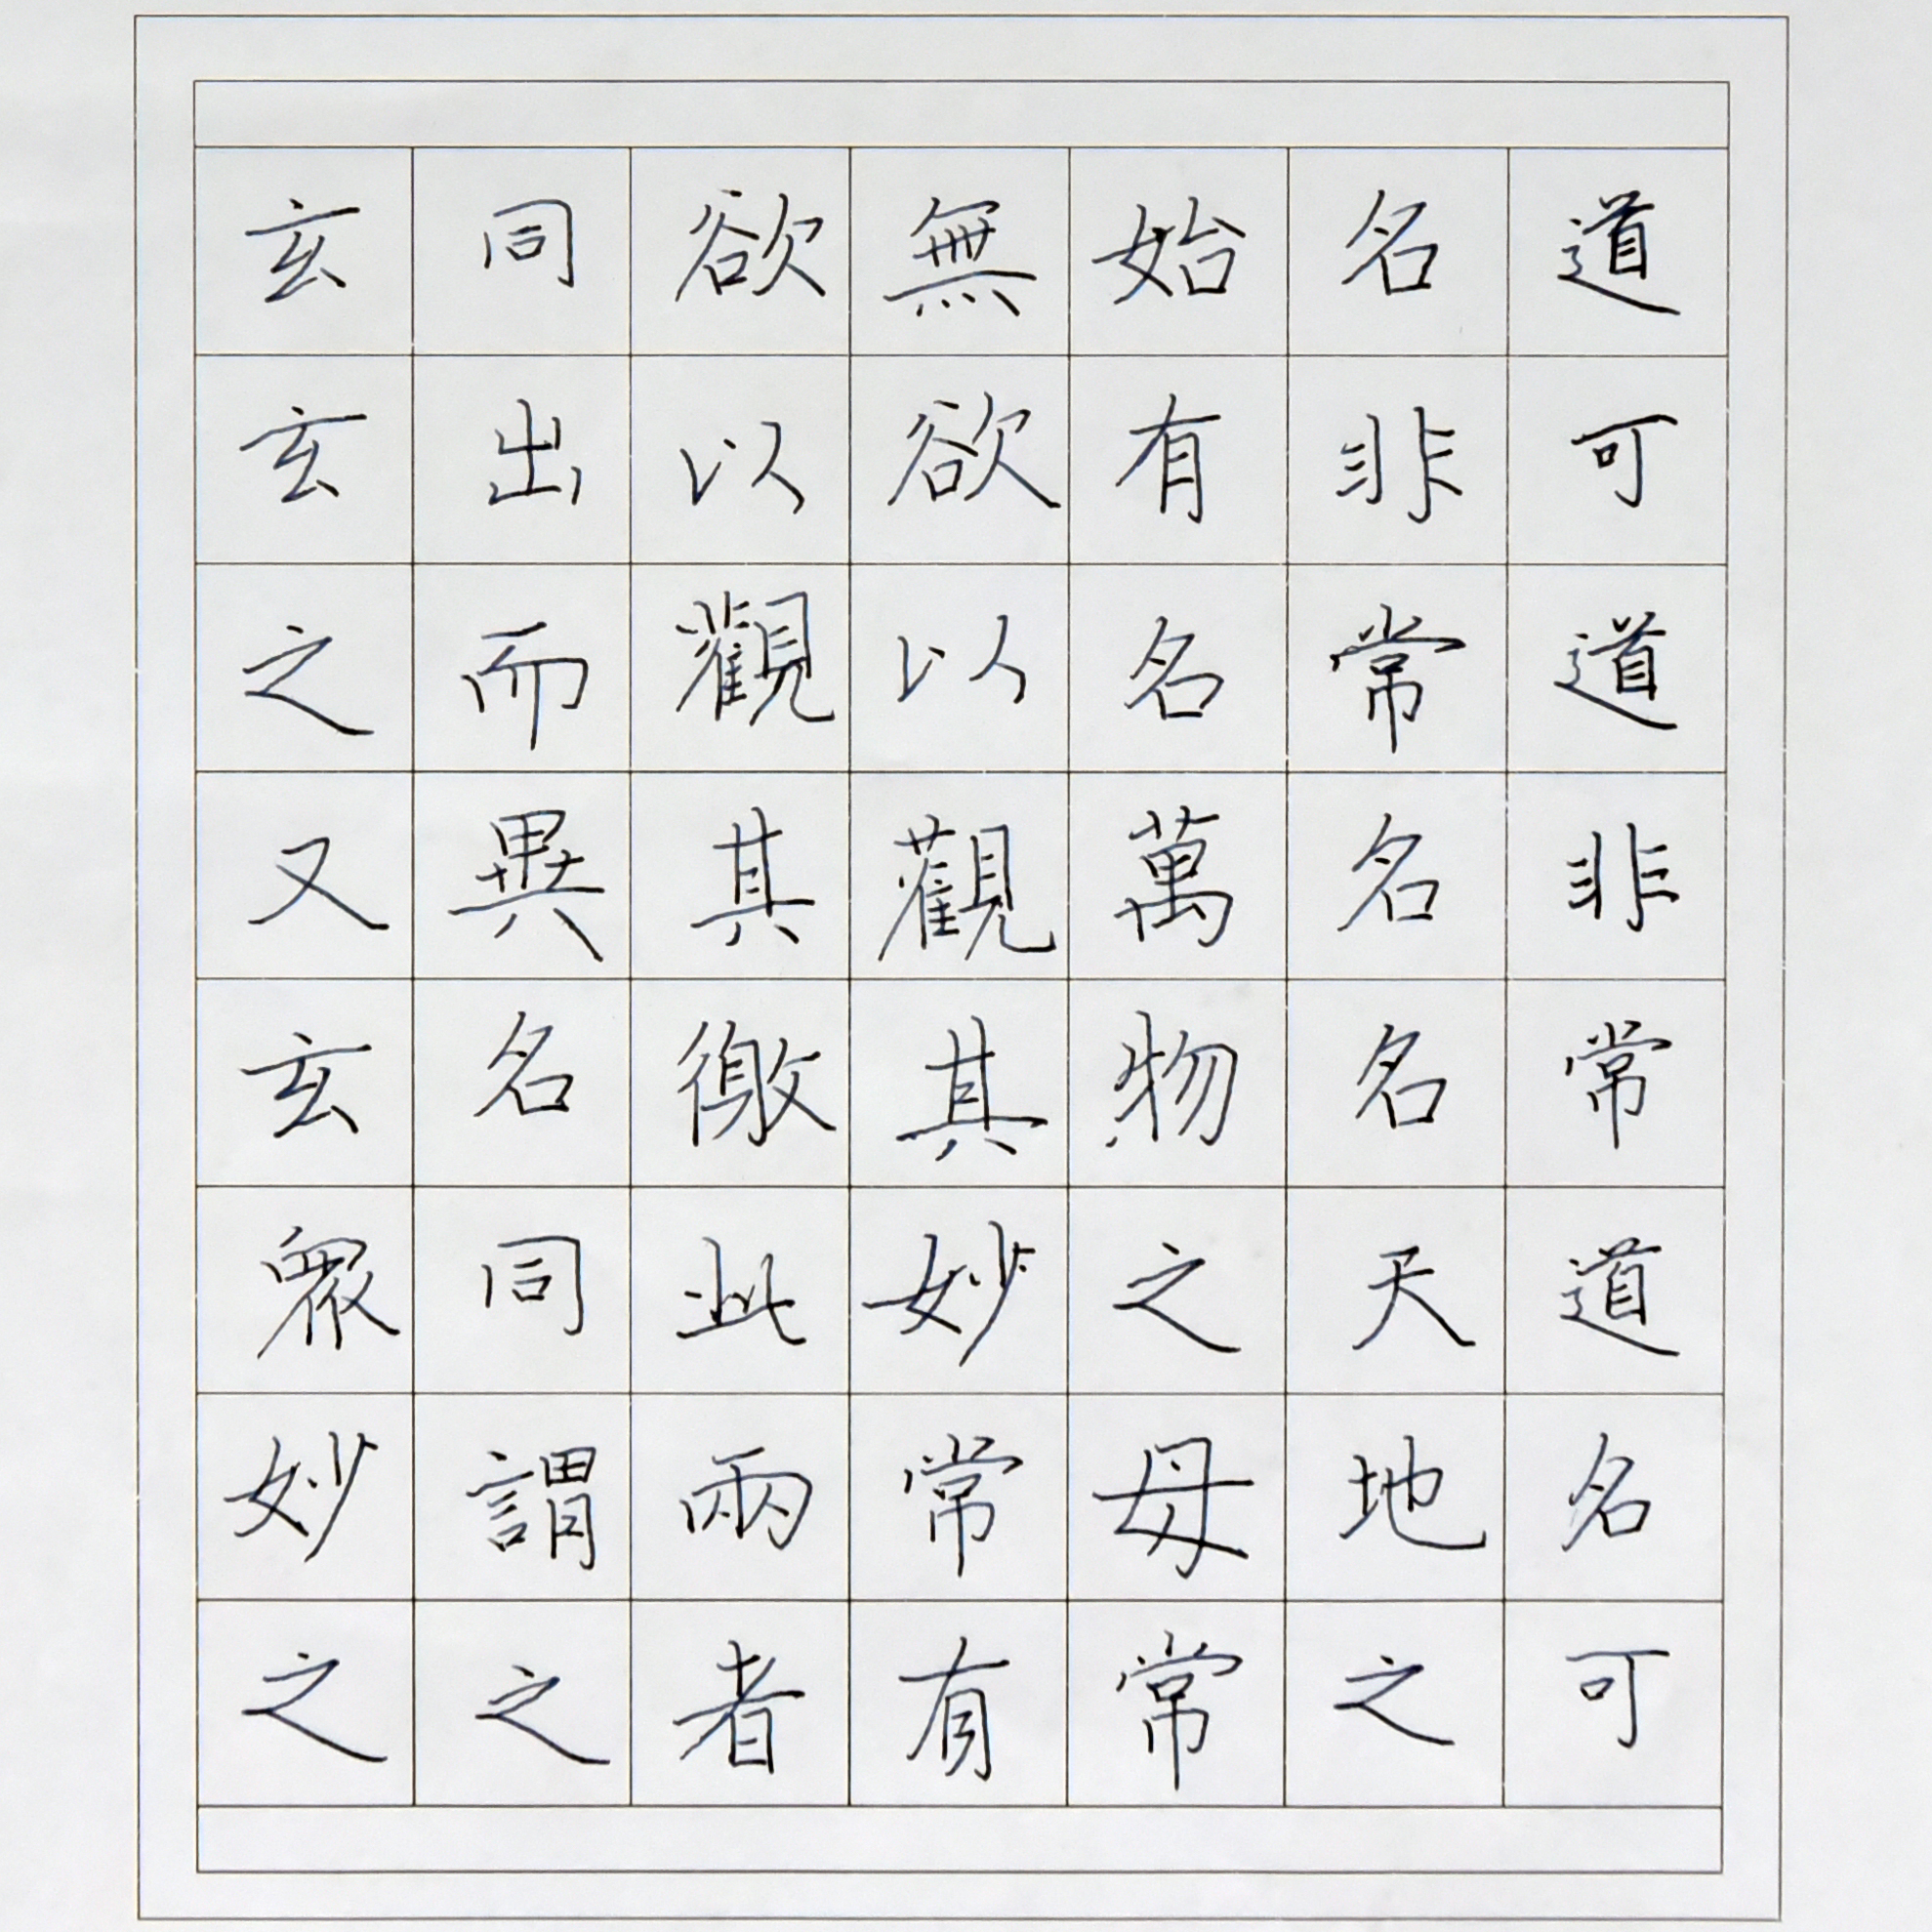 道可道非常道名可
名非常名名天地之
始有名萬物之母常
無欲以觀其妙常有
欲以觀其徼此兩者
同出而異名同謂之
玄玄之又玄眾妙之